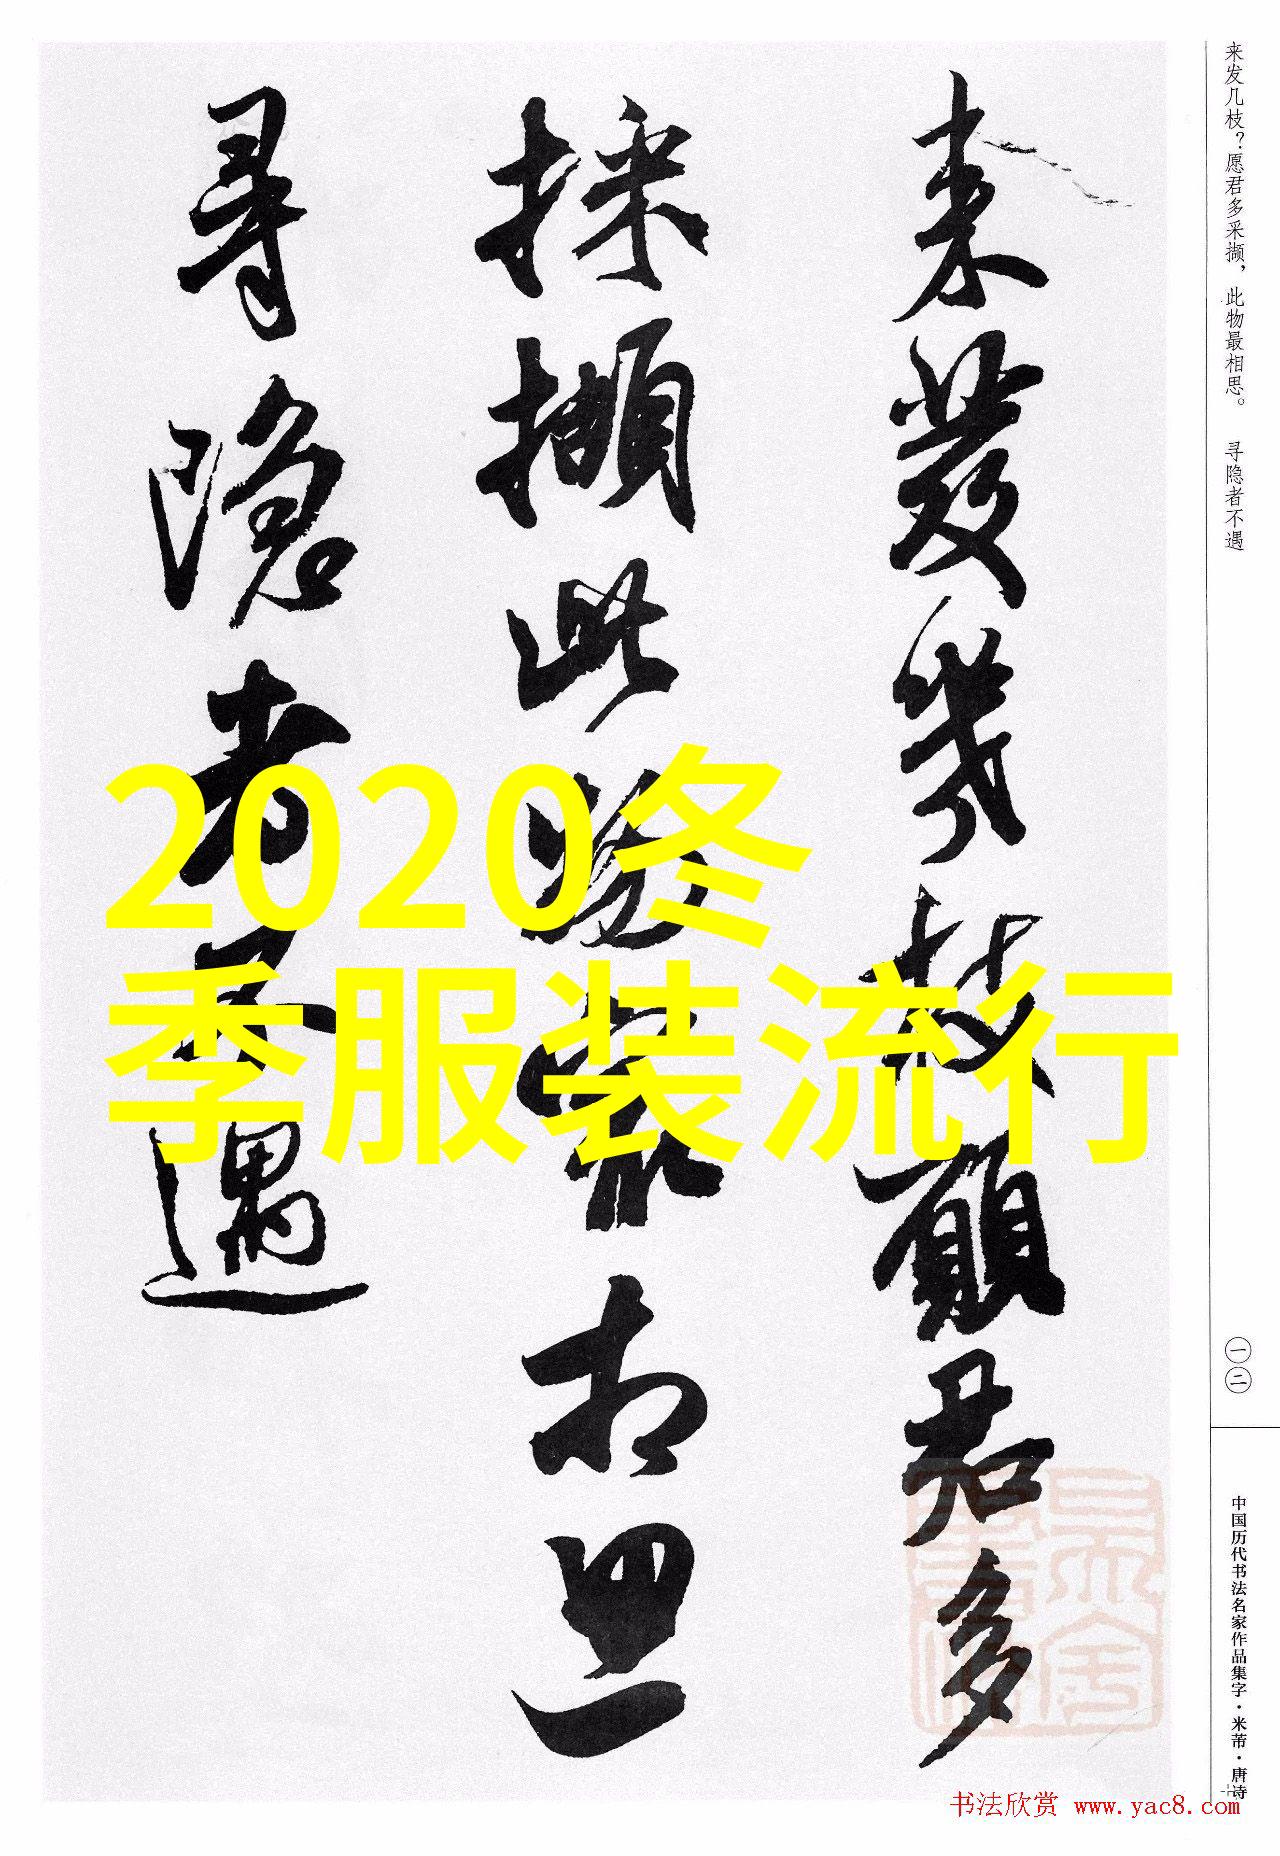 来发几枝？愿君多采撷，此物最相思。 寻隐者不遇
㊀㊁
中国历代书法名家作品集字·米芾·唐诗
来發幾枝願君多
採擷此物最相思
尋隱者不遇
2020冬
季服装流行
书法欣赏 www.yac8.com